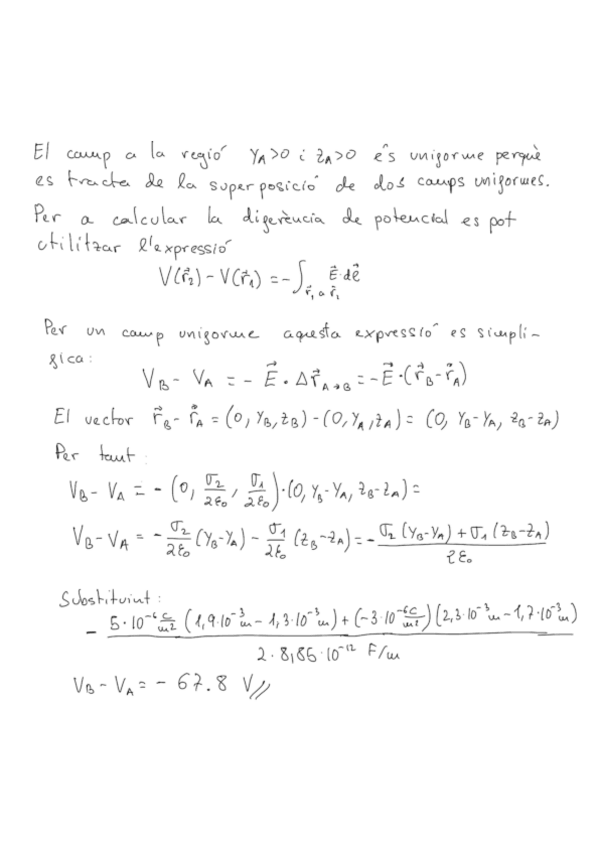 El camp a la regió y_A>0 i z_A>0 és uniforme perquè
es tracta de la superposició de dos camps uniformes.
Per a calcular la diferència de potencial es pot
utilitzar l'expressió
V(r⃗₂) - V(r⃗₁) = - ∫_{r⃗₁ a r⃗₂} E⃗·dℓ⃗
Per un camp uniforme aquesta expressió es simpli-
fica:
V_B - V_A = - E⃗ · Δr⃗_{A→B} = - E⃗·(r⃗_B - r⃗_A)
El vector r⃗_B - r⃗_A = (0, y_B, z_B) - (0, y_A, z_A) = (0, y_B - y_A, z_B - z_A)
Per tant:
V_B - V_A = - (0, σ₂/2ε₀, σ₁/2ε₀)·(0, y_B - y_A, z_B - z_A) =
V_B - V_A = - σ₂/2ε₀ (y_B - y_A) - σ₁/2ε₀ (z_B - z_A) = - (σ₂ (y_B - y_A) + σ₁ (z_B - z_A))/2ε₀
Substituint:
- (5·10⁻⁶ C/m² (1,9·10⁻³ m - 1,3·10⁻³ m) + (-3·10⁻⁶ C/m²)(2,3·10⁻³ m - 1,7·10⁻³ m))
2·8,85·10⁻¹² F/m
V_B - V_A = - 67.8 V//